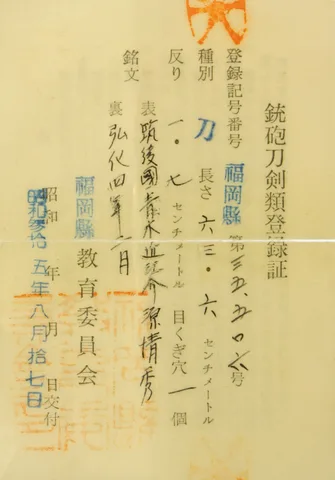 銃砲刀剣類登録証
登録記号番号 福岡縣 第三五五〇六号
種別 刀 長さ 六三・六 センチメートル
反り 一・七 センチメートル 目くぎ穴 一 個
銘文 表 筑後國 源清秀
裏 弘化四年二月
福岡縣 教育委員会
昭和 年 月 日交付
昭和参拾五年八月拾七日